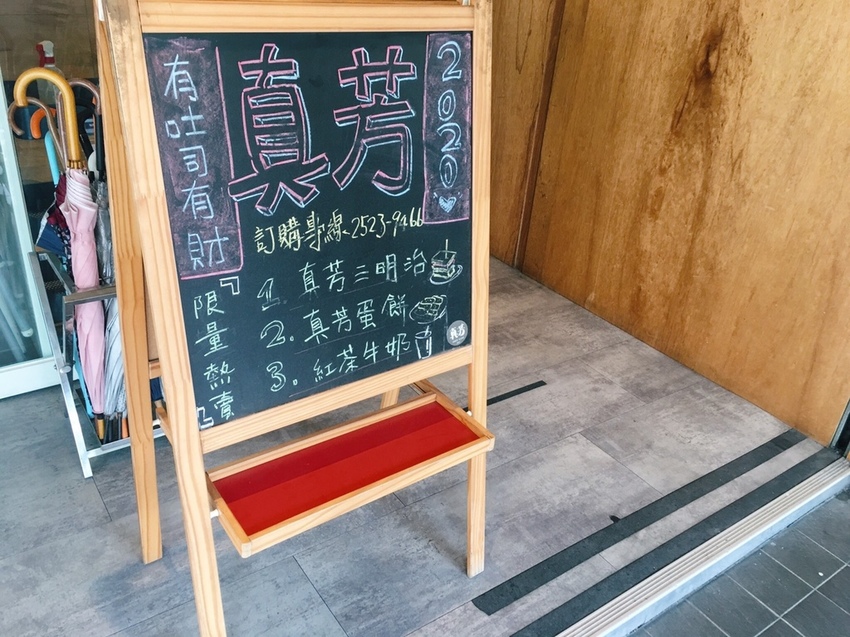 有吐司有財
真芳
2020
訂購專線:2523-9466
『限量熱賣』
1. 真芳三明治
2. 真芳蛋餅
3. 紅茶牛奶
真芳